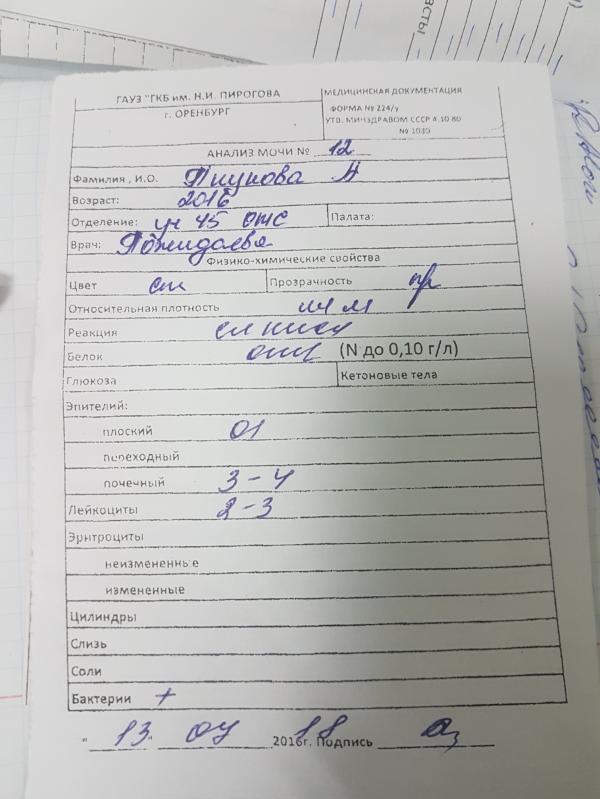 ГАУЗ "ГКБ им. Н.И. ПИРОГОВА
г. ОРЕНБУРГ
МЕДИЦИНСКАЯ ДОКУМЕНТАЦИЯ
ФОРМА № 224/у
УТВ. МИНЗДРАВОМ СССР 4.10 80
№ 1030
АНАЛИЗ МОЧИ № 12
Фамилия , И.О.
Возраст: 2016
Отделение: уч 45 отс Палата:
Врач: Пожидаева
Физико-химические свойства
Цвет сж Прозрачность пр
Относительная плотность м м
Реакция сл кисл
Белок отс (N до 0,10 г/л)
Глюкоза Кетоновые тела
Эпителий:
плоский 01
переходный
почечный 3-4
Лейкоциты 2-3
Эритроциты
неизмененные
измененные
Цилиндры
Слизь
Соли
Бактерии +
"13" 04 18 2016г. Подпись